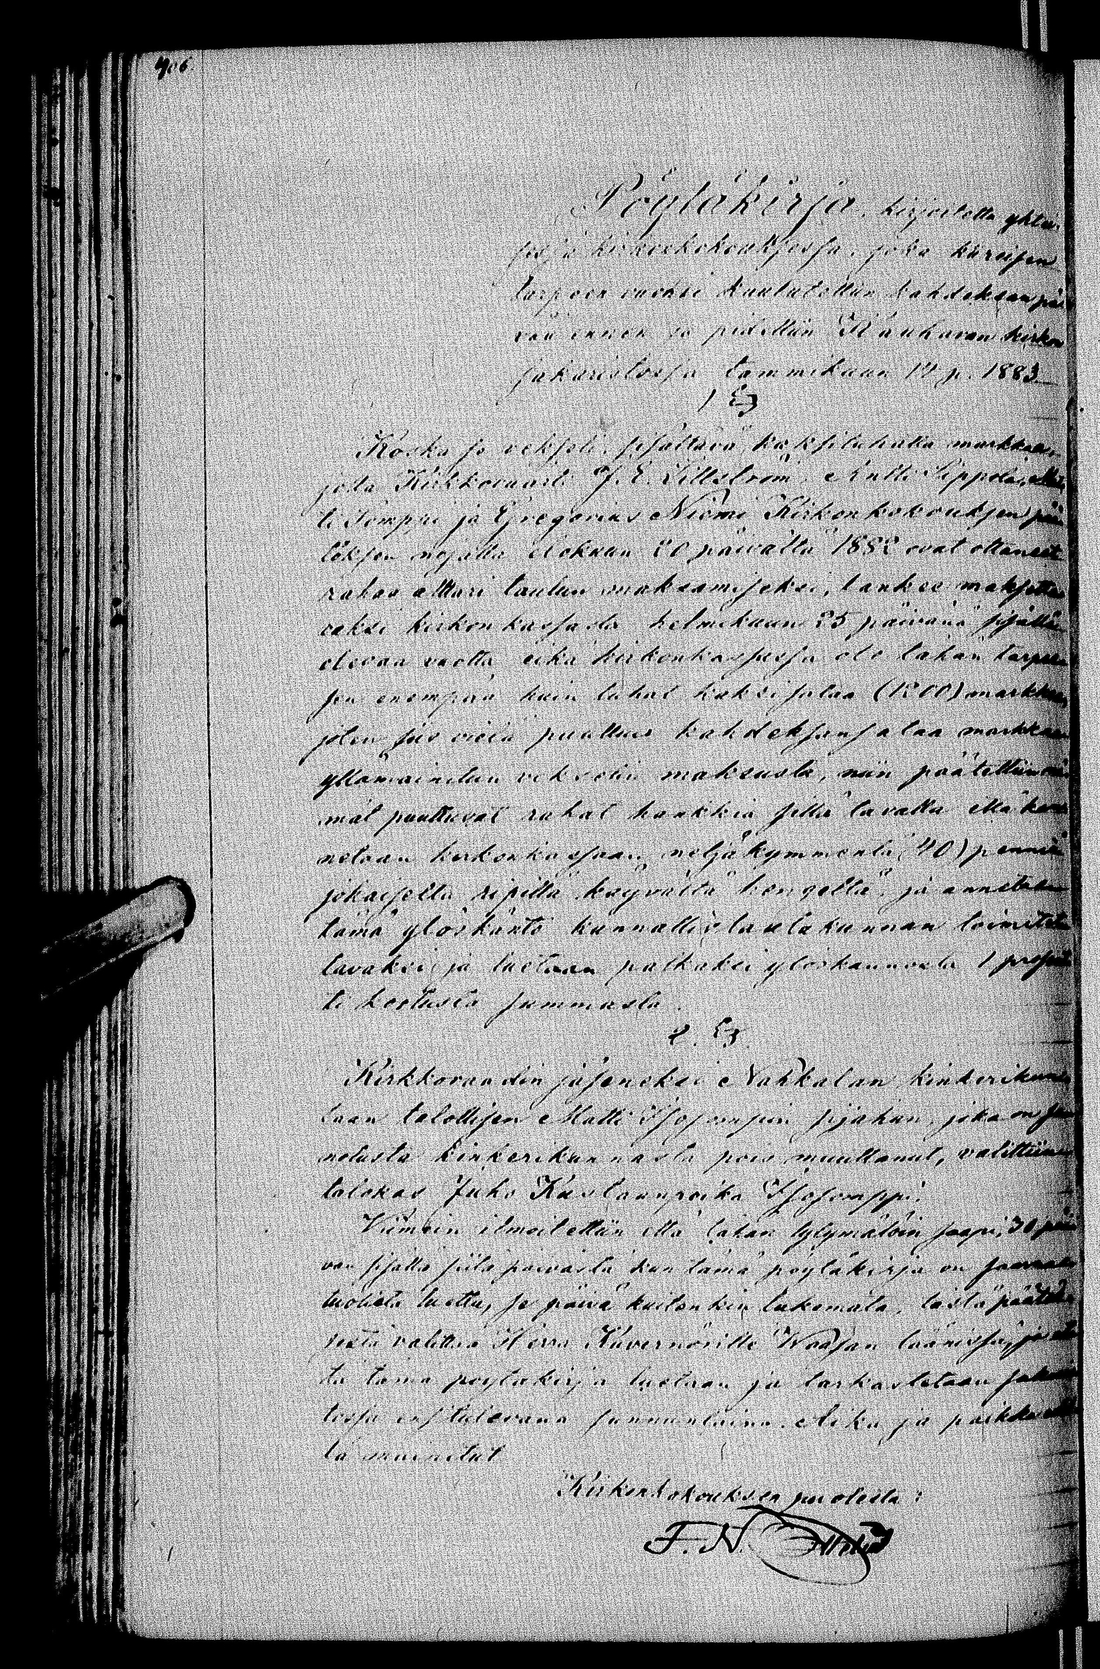 406
Pöytäkirja, kirjoitettu yhtei-
sessä kirkonkokouksessa, joka
tarpeen vuoksi kuulutettiin kahdeksan päi-
vää ennen ja pidettiin Kauhavan kirkon
sakaristossa tammikuun 14 p. 1883
1 §
Koska se vekseli, sisältävä kaksituhatta markkaa,
jota Kirkkovaarti J. E. Lillström, Antti Sippola, Mat-
ti Somppi ja Gregorius Niemi Kirkonkokouksen pää-
töksen nojalla elokuun 20 päivältä 1882 ovat ottaneet
rahaa alttari taulun maksamiseksi, lankee maksetta-
vaksi kirkonkassasta helmikuun 25 päivänä sisällä
olevaa vuotta eikä kirkonkassassa ole tähän tarpee-
sen enempää kuin tuhat kaksi sataa (1200) markkaa,
joten siis vielä puuttuu kahdeksansataa markkaa
yllämainitun vekselin maksusta, niin päätettiin nä-
mät puuttuvat rahat hankkia sillä tavalla että kan-
netaan kirkonkassaan neljäkymmentä (40) penniä
jokaiselta ripillä käyvältä hengeltä, ja annetaan
tämä ylöskanto kunnallislautakunnan toimitet-
tavaksi ja luetaan palkaksi ylöskannosta 1 prosen-
ti kootusta summasta.
2. §
Kirkkovaadin jäseneksi Nahkalan kinkerikun-
taan talollisen Matti Isosompin sijahan, joka on sa-
notusta kinkerikunnasta pois muuttanut, valittiin
talokas Juho Kustaanpoika Isosomppi.
Viimein ilmoitettiin että tähän tytymätöin saapi, 30 päi-
vän sisällä siitä päivästä kun tämä pöytäkirja on saarna
tuolista luettu, se päivä kuitenkin lukemata, tästä päätök-
sestä valittaa Herra Kuvernörille Waasan läänissä, ja
tä tämä pöytäkirja luetaan ja tarkastetaan sakaris-
tossa ensitulevana sunnuntaina. Aika ja paikka
lä mainitut
Kirkonkokouksen puolesta:
F. N.